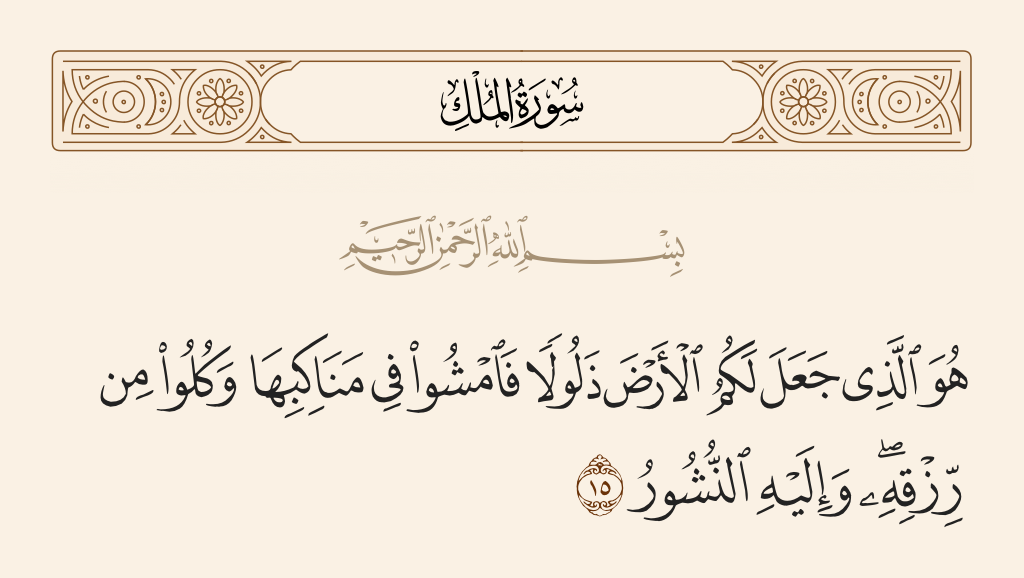 سُورَةُ المُلْكِ
بِسْمِ ٱللَّهِ ٱلرَّحْمَٰنِ ٱلرَّحِيمِ
هُوَ ٱلَّذِى جَعَلَ لَكُمُ ٱلْأَرْضَ ذَلُولًا فَٱمْشُوا۟ فِى مَنَاكِبِهَا وَكُلُوا۟ مِن
رِّزْقِهِۦ ۖ وَإِلَيْهِ ٱلنُّشُورُ ١٥